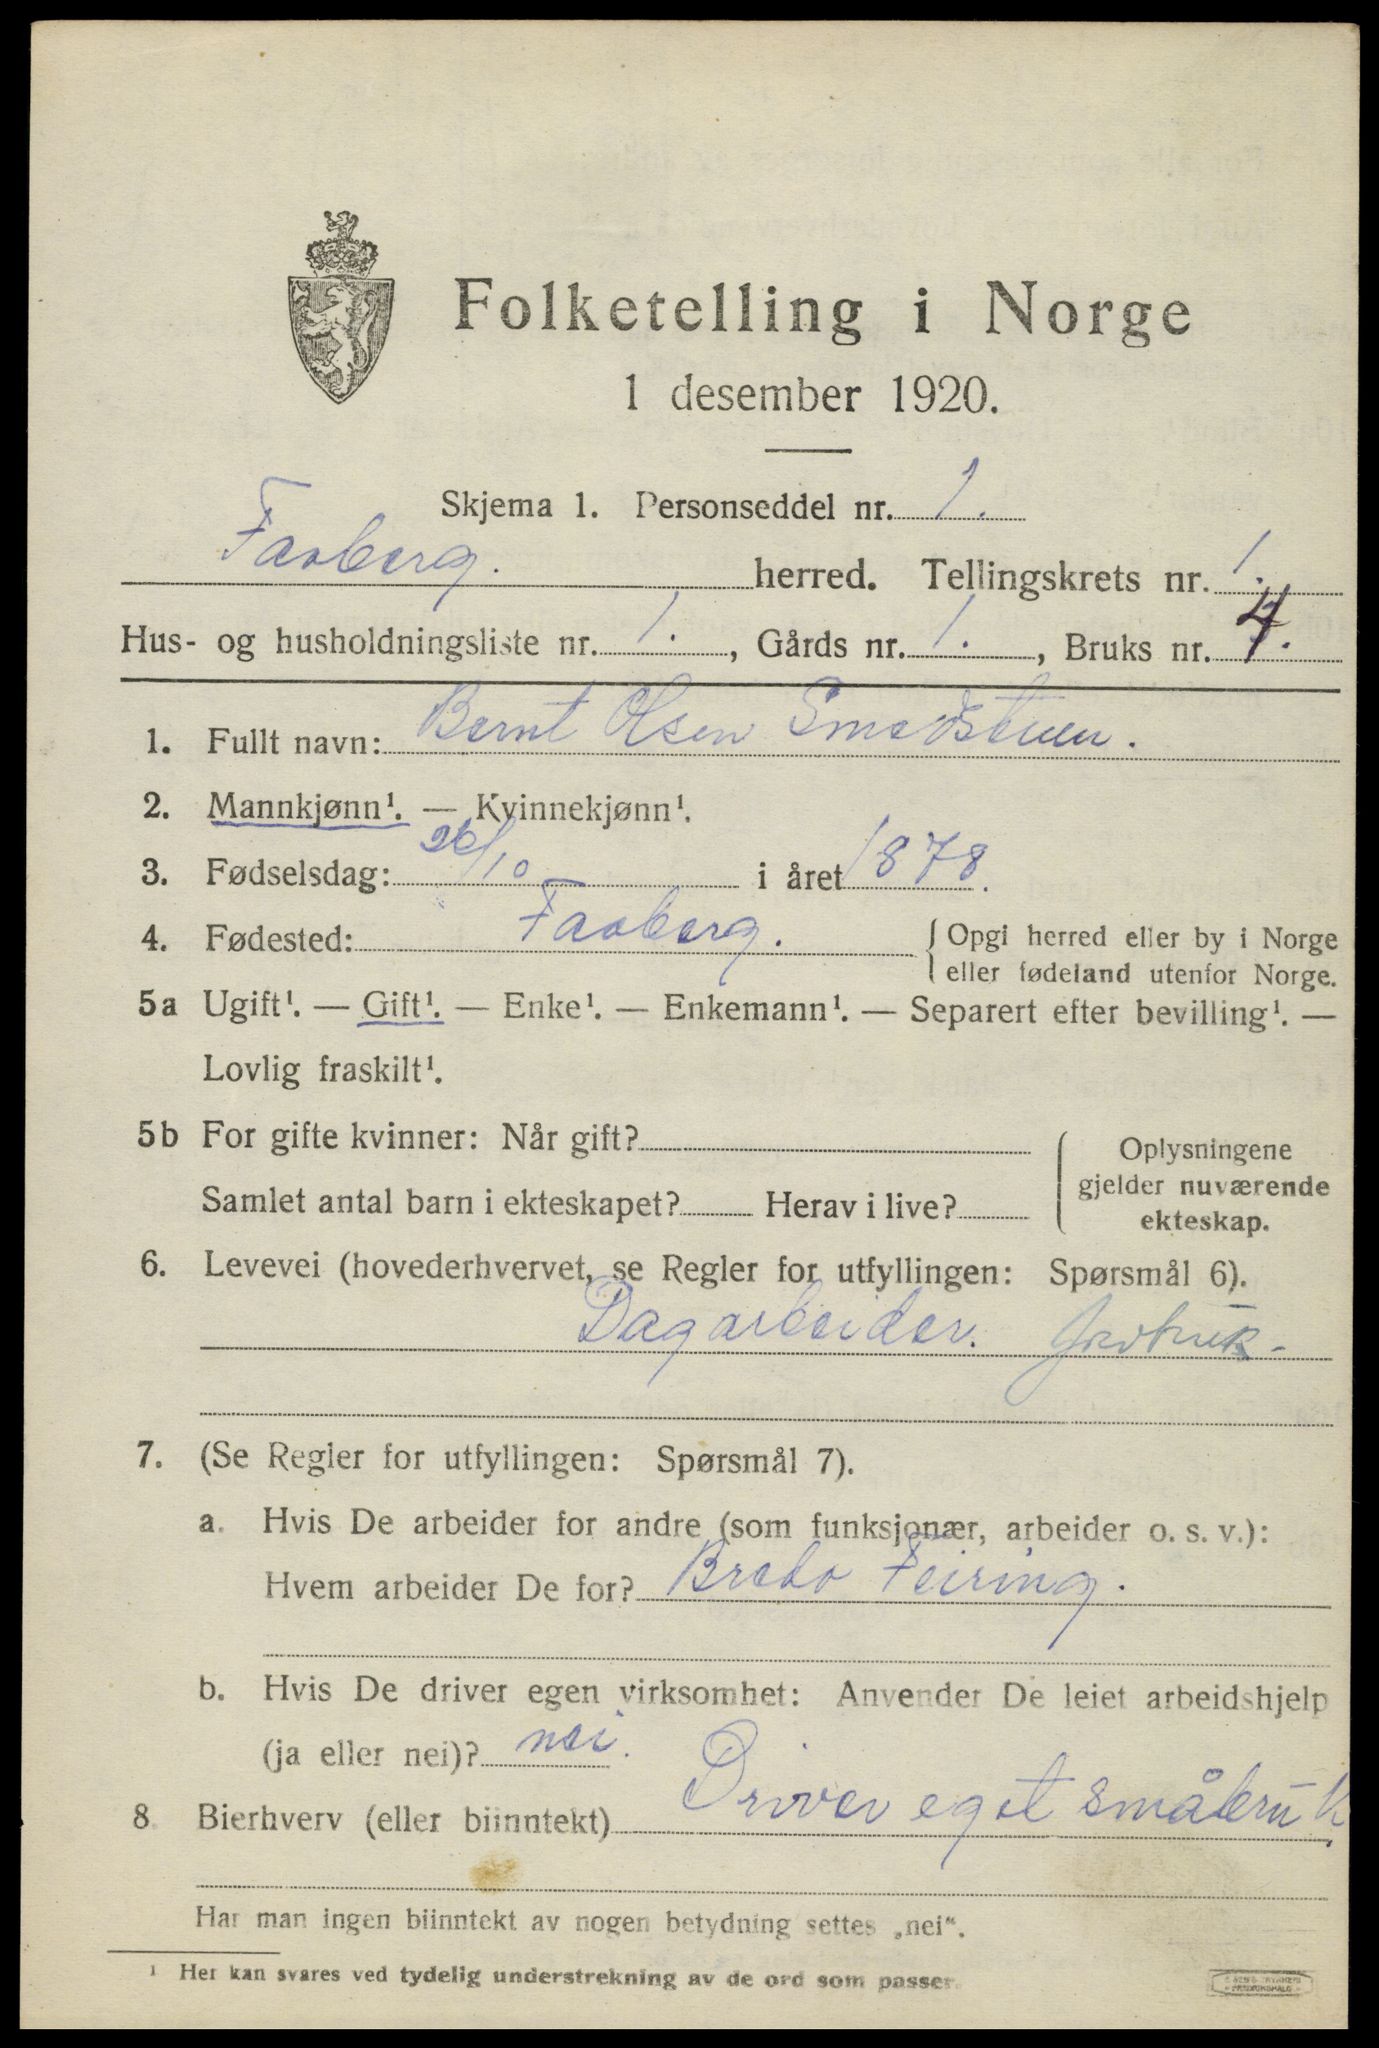 Folketelling i Norge
1 desember 1920.
Skjema 1. Personseddel nr. 1.
Faaberg. herred. Tellingskrets nr. 1.
Hus- og husholdningsliste nr. 1. , Gårds nr. 1. , Bruks nr. 4.
1. Fullt navn: Bernt Olsen Smedstuen.
2. Mannkjønn¹. — Kvinnekjønn¹.
3. Fødselsdag: 26/10 i året 1878.
4. Fødested: Faaberg. { Opgi herred eller by i Norge
eller fødeland utenfor Norge.
5a Ugift¹. — Gift¹. — Enke¹. — Enkemann¹. — Separert efter bevilling¹. —
Lovlig fraskilt¹.
5b For gifte kvinner: Når gift?
Samlet antal barn i ekteskapet? Herav i live?
Oplysningene
gjelder nuværende
ekteskap.
6. Levevei (hovederhvervet, se Regler for utfyllingen: Spørsmål 6).
Dagarbeider. Jrdbruk-
7. (Se Regler for utfyllingen: Spørsmål 7).
a. Hvis De arbeider for andre (som funksjonær, arbeider o. s. v.):
Hvem arbeider De for? Bredo Feiring.
b. Hvis De driver egen virksomhet: Anvender De leiet arbeidshjelp
(ja eller nei)? nei.
8. Bierhverv (eller biinntekt) Driver eget småbruk
Har man ingen biinntekt av nogen betydning settes „nei“.
¹ Her kan svares ved tydelig understrekning av de ord som passer.